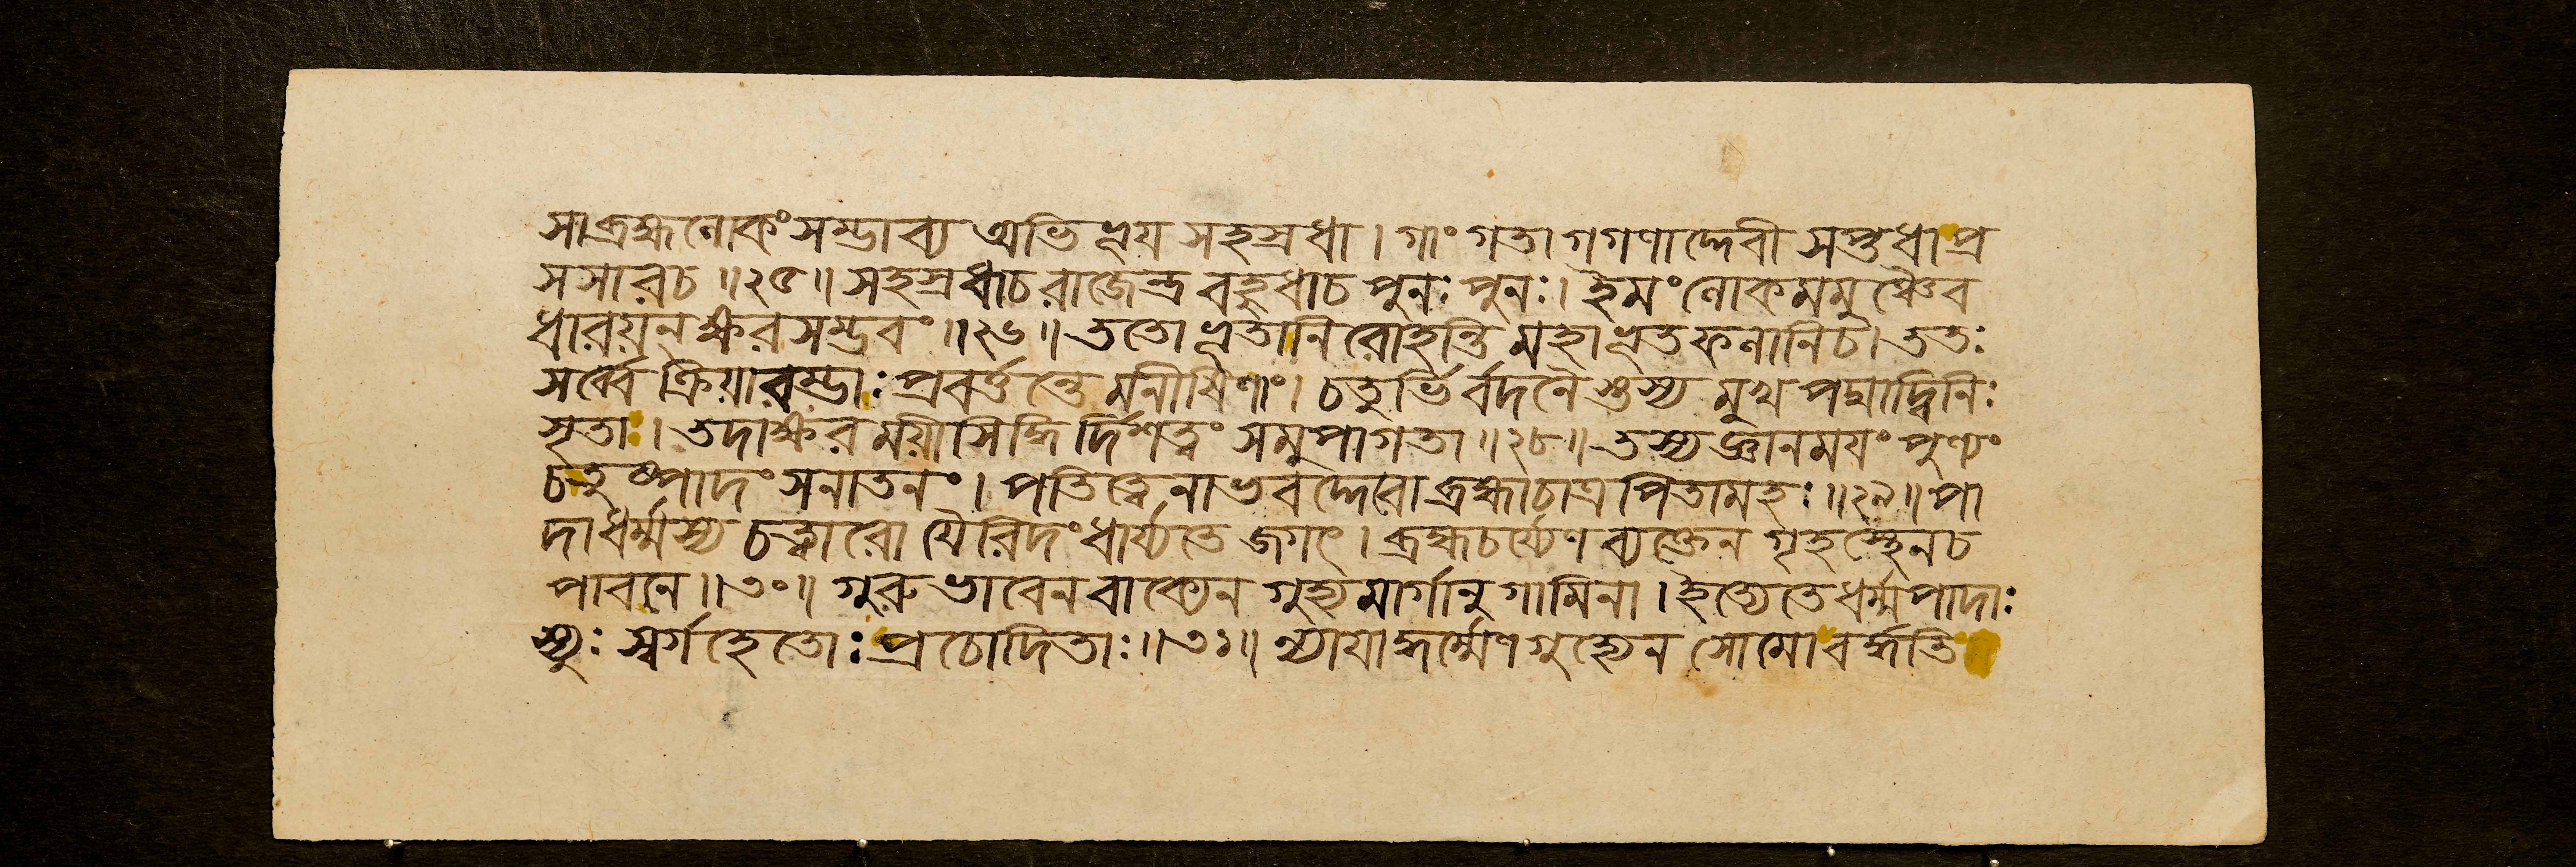 সাব্রহ্মলোকংসম্প্লাব্য অভিপ্লূয় সহস্রধা। গাং গতা গগণাদ্দেবী সপ্তধাপ্র
সসারচ॥২৫॥ সহস্রধাচরাজেন্দ্র বহুধাচ পুনঃ পুনঃ। ইমং লোকমমুঞ্চৈব
ধারয়নক্ষরসম্ভবং॥২৬॥ ততো ভূতানি রোহন্তি মহাভূতফলানিচ। ততঃ
সর্ব্বে ক্রিয়ারম্ভাঃ প্রবর্ত্তন্তে মনীষিণাং। চতুর্ভির্বদনৈস্তস্য মুখ পদ্মাদ্বিনিঃ
সৃতাঃ। তদাক্ষরময়ীসিদ্ধির্দিশত্বং সমুপাগতা॥২৮॥ তস্যজ্ঞানময়ং পুণ্যং
চতুষ্পাদং সনাতনং। পতিত্বেনাভবদ্দেবো ব্রহ্মাচাত্র পিতামহঃ॥২৯॥ পা
দাধর্ম্মস্য চত্বারো যৈরিদংধার্য্যতে জগৎ। ব্রহ্মচর্য্যেণ ব্যক্তেন গৃহস্থেনচ
পাবনে॥৩০॥ গুরুভাবেন বাক্যেন গুহ্যমার্গানুগামিনা। ইত্যেতেধর্ম্মপাদাঃ
স্যুঃ স্বর্গহেতোঃ প্রচোদিতাঃ॥৩১॥ ন্যায়াদ্ধর্ম্মেণগুহ্যেন সোমোবর্দ্ধতি